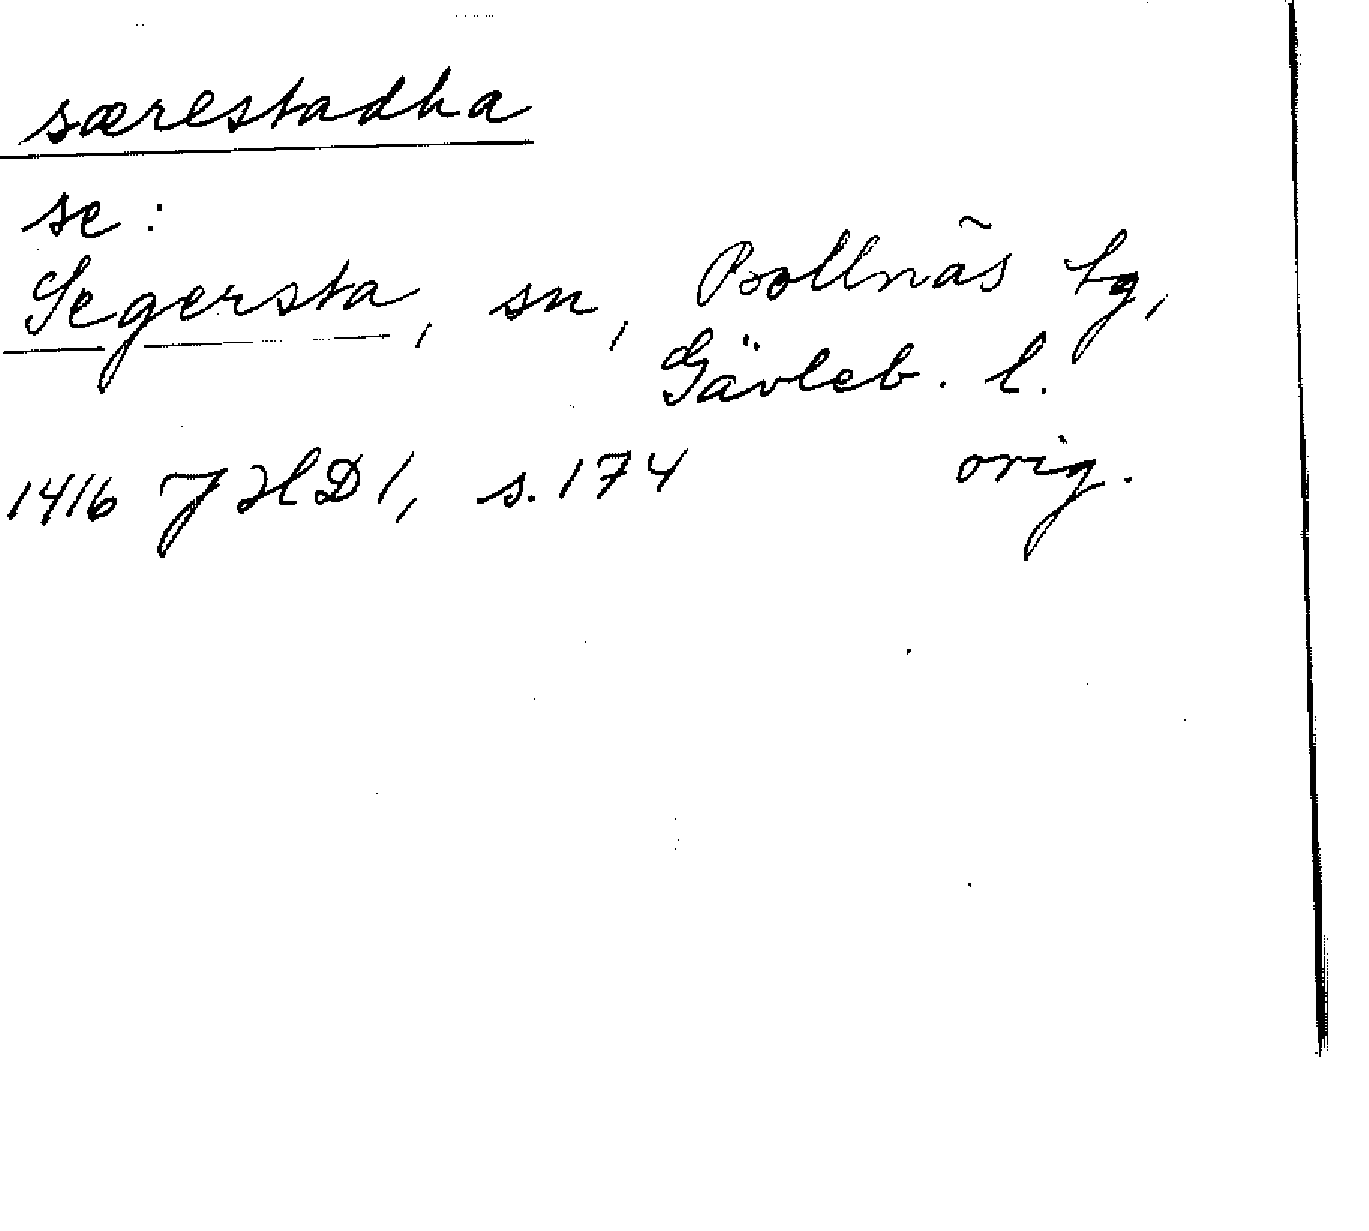 særestadha
se:
Segersta, sn, Bollnäs tg,
Gävleb. l.
1416 JHD 1, s. 174 orig.